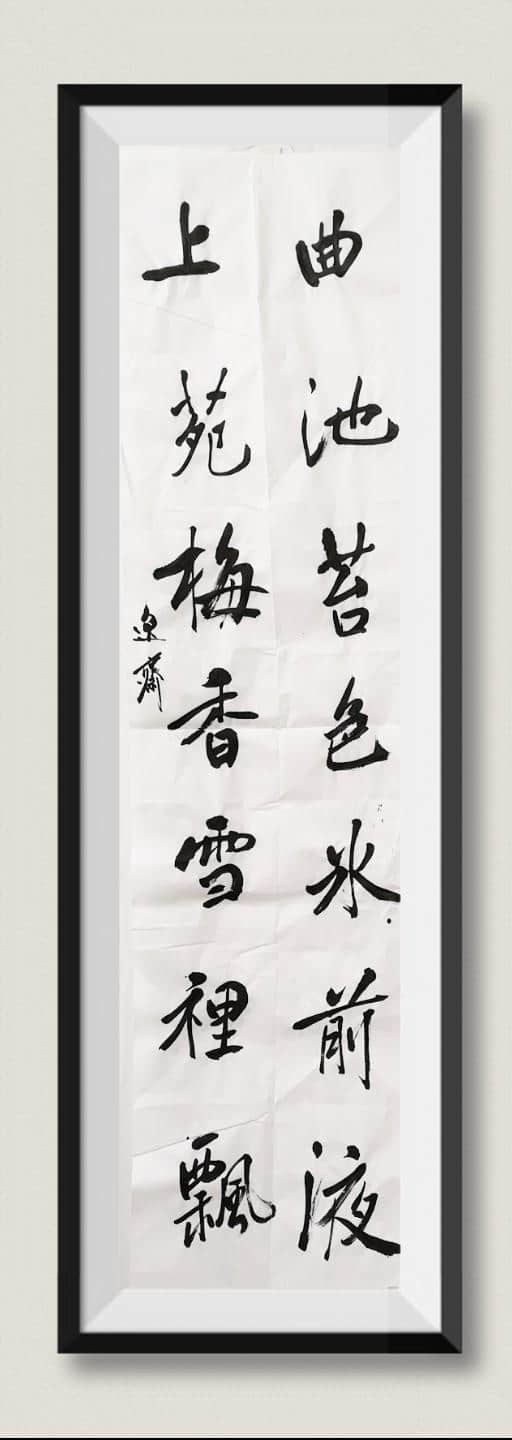 曲池苔色冰前液
上苑梅香雪裡飄
逸齋